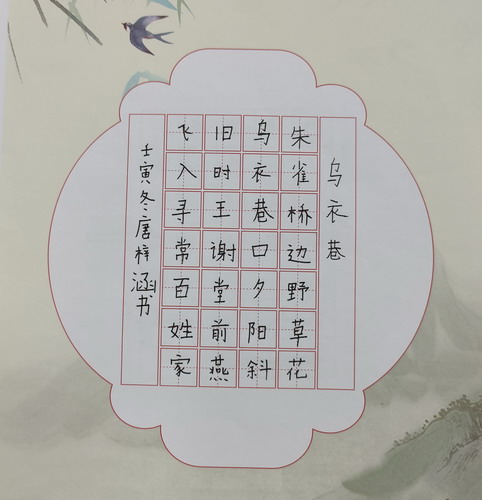 乌衣巷
朱雀桥边野草花
乌衣巷口夕阳斜
旧时王谢堂前燕
飞入寻常百姓家
壬寅冬唐梓涵书